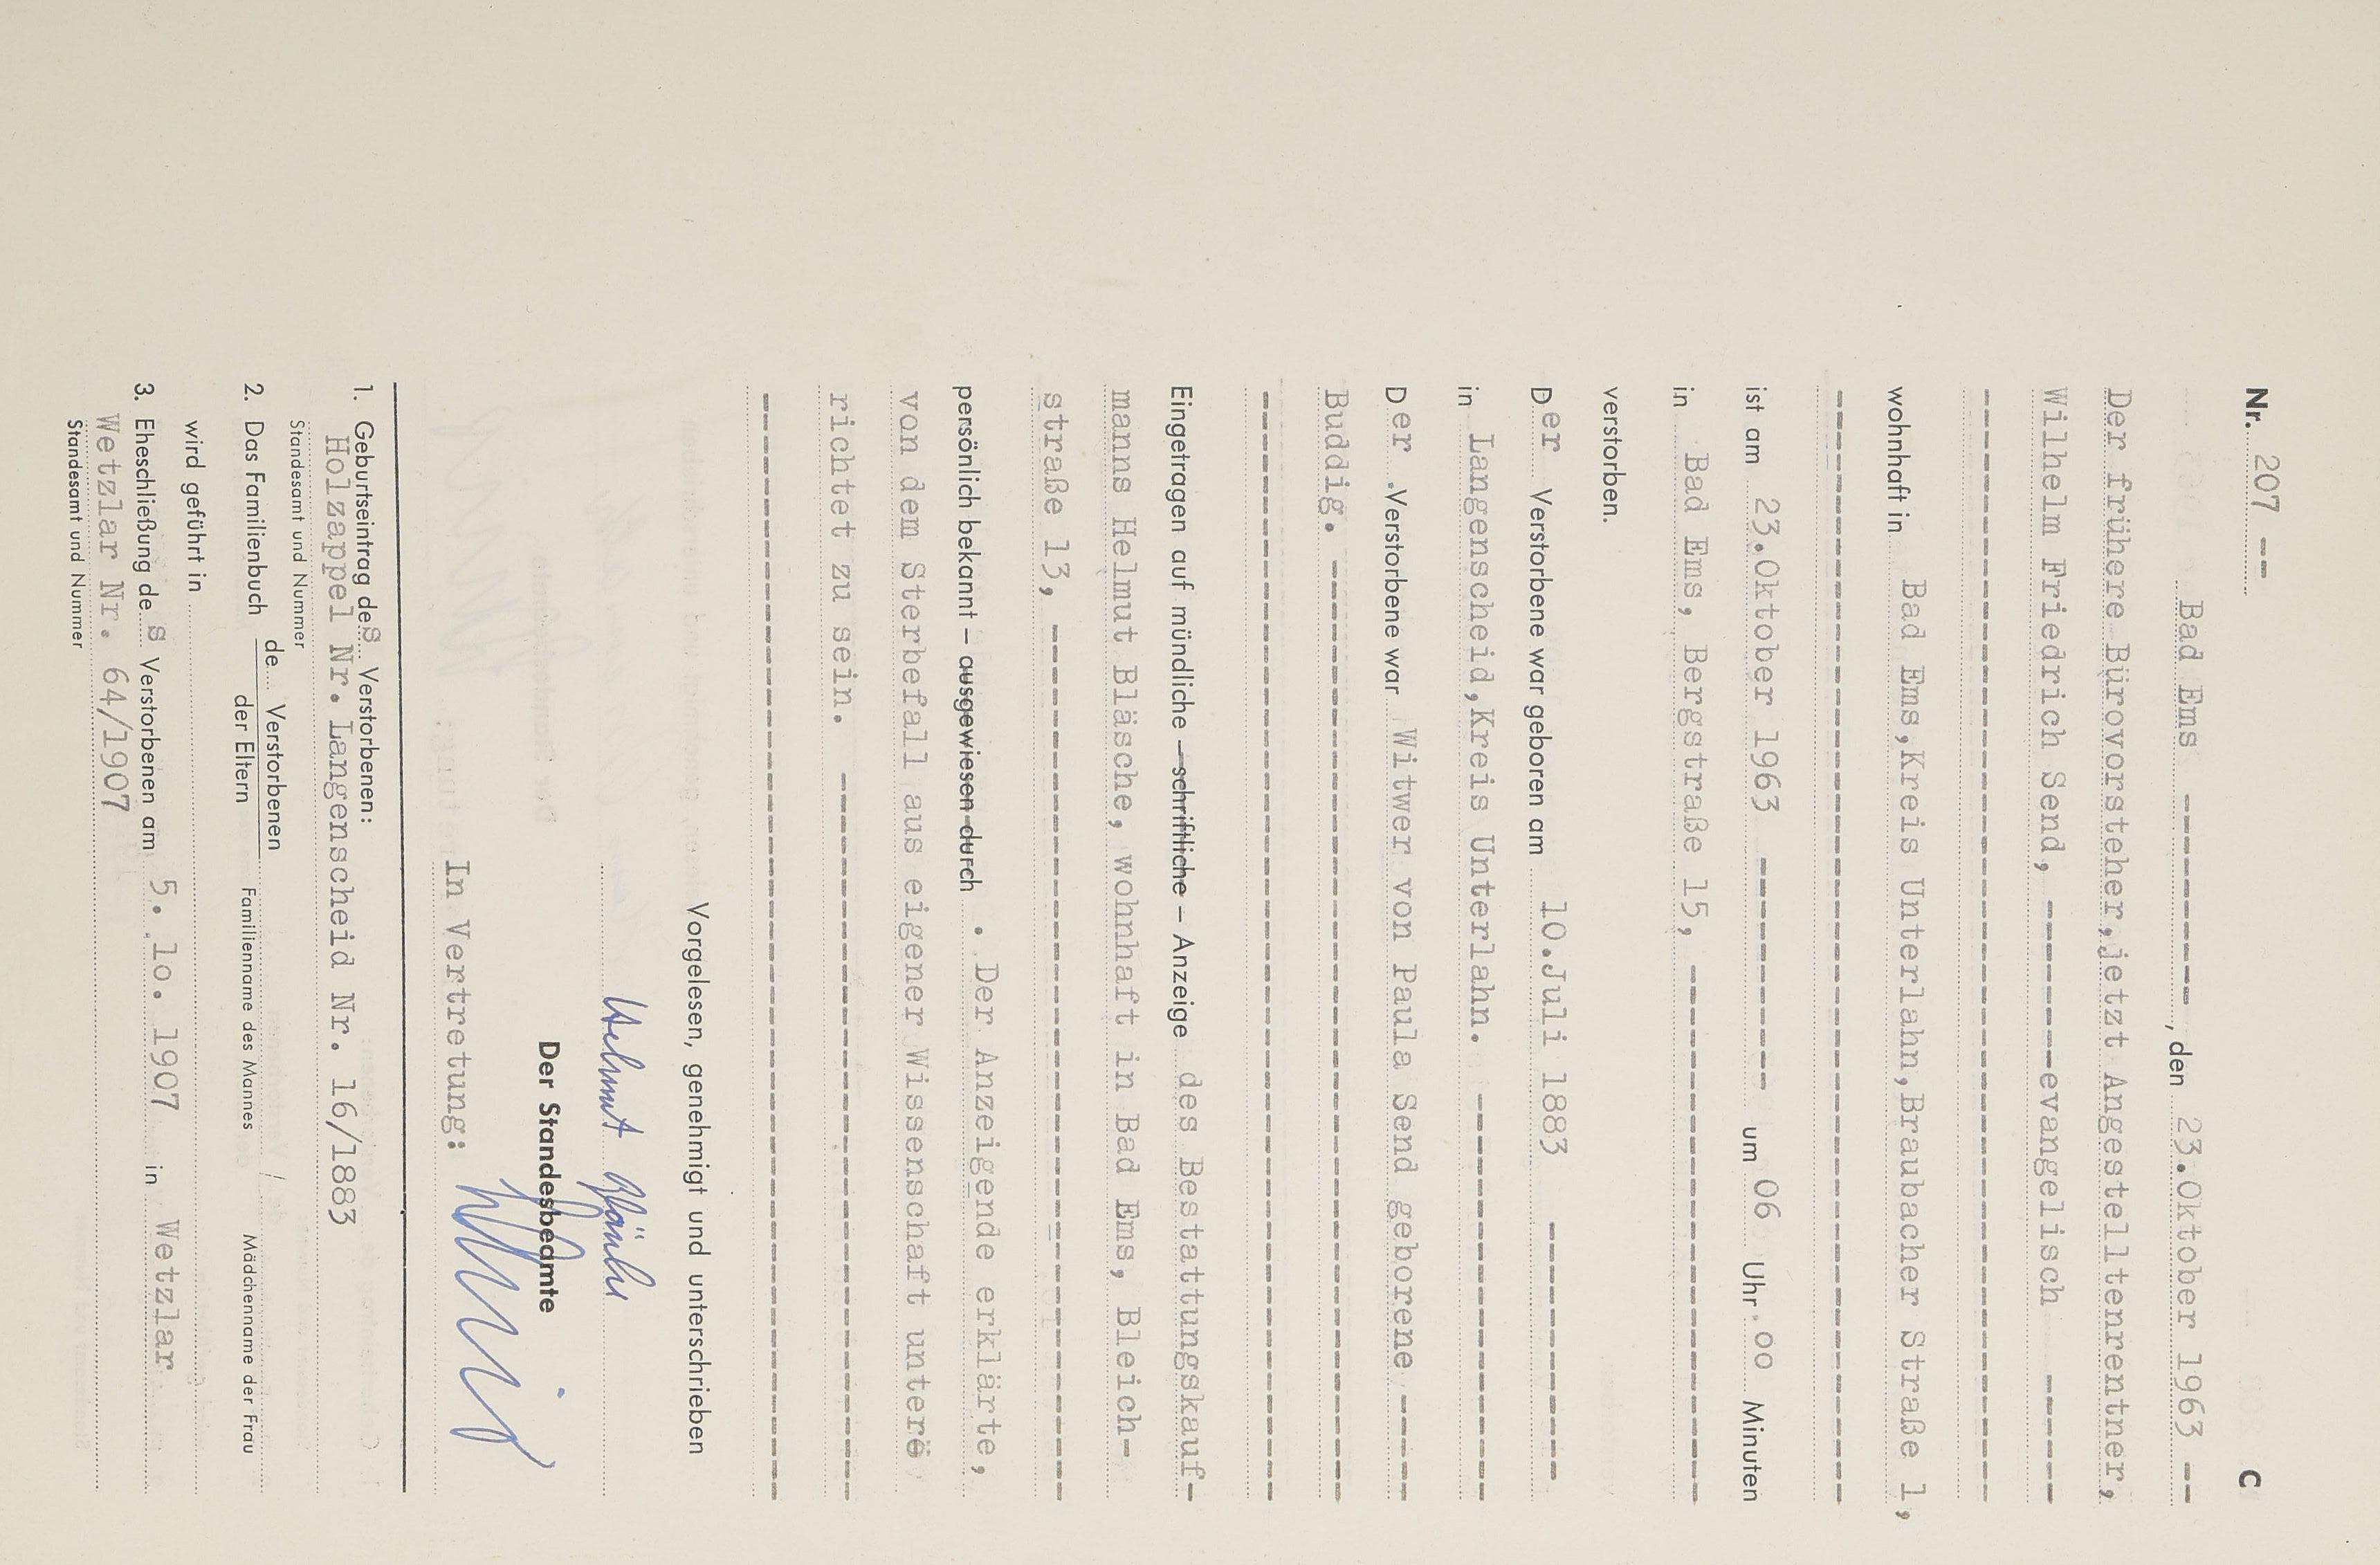 Nr. 207 -- C
Bad Ems ----------, den 23.Oktober 1963 --
Der frühere Bürovorsteher,jetzt Angestelltenrentner,
Wilhelm Friedrich Send, --------evangelisch ------
wohnhaft in Bad Ems,Kreis Unterlahn,Braubacher Straße 1,
ist am 23.Oktober 1963 ----------- um 06 Uhr oo Minuten
in Bad Ems, Bergstraße 15, ------------------------
verstorben.
Der Verstorbene war geboren am 10.Juli 1883 ------------
in Langenscheid,Kreis Unterlahn. ------------------
Der Verstorbene war Witwer von Paula Send geborene -----
Buddig. ---------------------------------------------
Eingetragen auf mündliche – schriftliche – Anzeige des Bestattungskauf-
manns Helmut Bläsche, wohnhaft in Bad Ems, Bleich-
straße 13, ------------------------------------------
persönlich bekannt – ausgewiesen durch . Der Anzeigende erklärte,
von dem Sterbefall aus eigener Wissenschaft unter
richtet zu sein. ------------------------------------
Vorgelesen, genehmigt und unterschrieben
Helmut Bläsche
Der Standesbeamte
In Vertretung:
1. Geburtseintrag des Verstorbenen:
Holzappel Nr. Langenscheid Nr. 16/1883
Standesamt und Nummer
2. Das Familienbuch de... Verstorbenen /
der Eltern Familienname des Mannes Mädchenname der Frau
wird geführt in
3. Eheschließung des Verstorbenen am 5. lo. 1907 in Wetzlar
Wetzlar Nr. 64/1907
Standesamt und Nummer